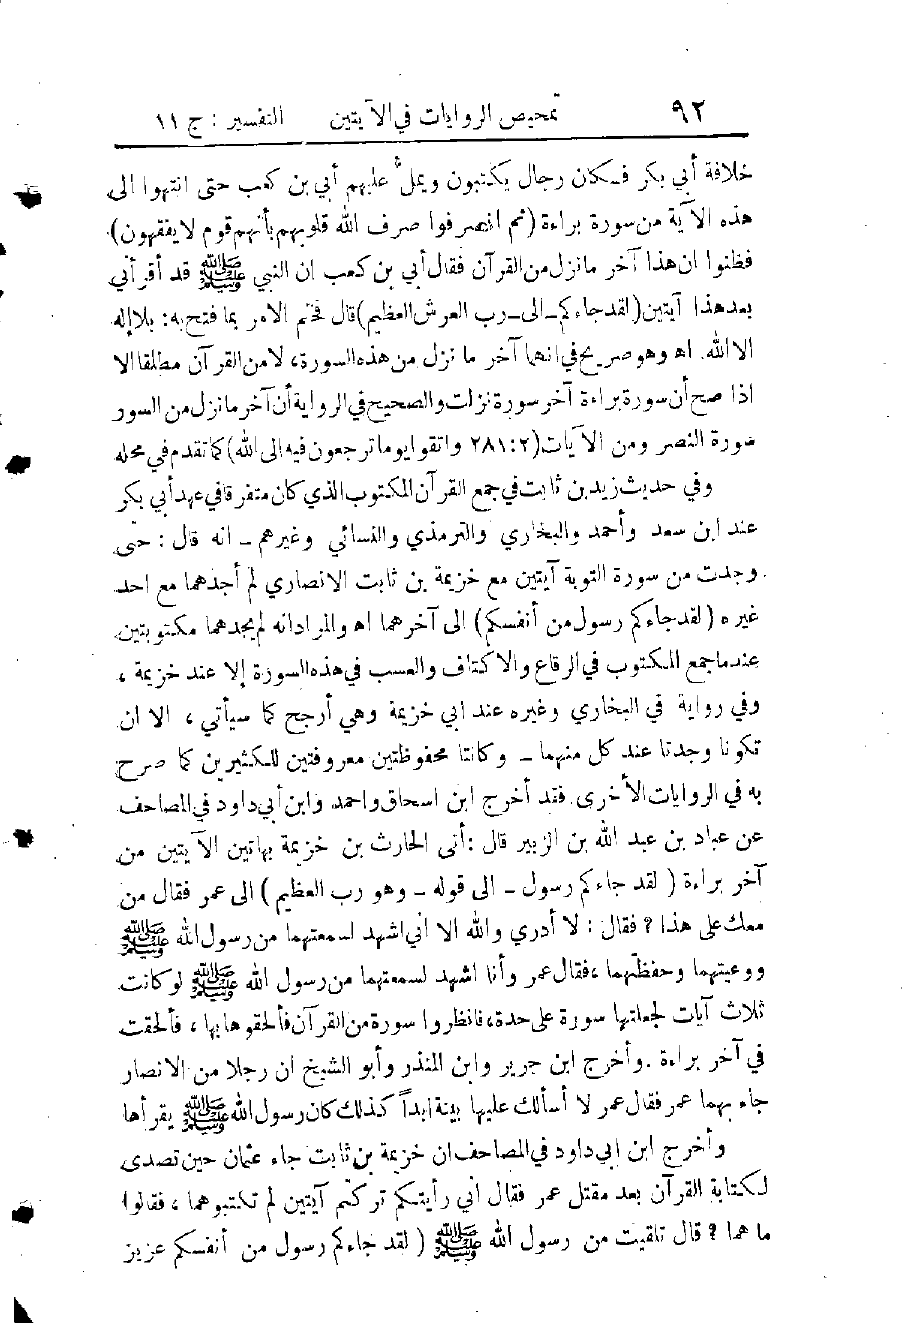 ٩٢ تمحيص الروايات في الآيتين التفسير : ج ١١
خلافة أبي بكر فكان رجال يكتبون ويمل عليهم أبي بن كعب حتى انتهوا الى
هذه الآية من سورة براءة (ثم انصرفوا صرف الله قلوبهم بأنهم قوم لا يفقهون)
فظنوا ان هذا آخر ما نزل من القرآن فقال أبي بن كعب ان النبي ﷺ قد أقرأني
بعد هذا آيتين (لقد جاءكم ـ الى ـ رب العرش العظيم) قال فختم الامر بما فتح به : بلا إله
الا الله. اه وهو صريح في انهما آخر ما نزل من هذه السورة، لا من القرآن مطلقا الا
اذا صح أن سورة براءة آخر سورة نزلت والصحيح في الرواية أن آخر ما نزل من السور
سورة النصر ومن الآيات (٢:٢٨١ واتقوا يوما ترجعون فيه الى الله) كما تقدم في محله
وفي حديث زيد بن ثابت في جمع القرآن المكتوب الذي كان متفرقا في عهد أبي بكر
عند ابن سعد وأحمد والبخاري والترمذي والنسائي وغيرهم ـ انه قال : حتى
وجدت من سورة التوبة آيتين مع خزيمة بن ثابت الانصاري لم أجدهما مع احد
غيره (لقد جاءكم رسول من أنفسكم) الى آخرهما اه والمراد انه لم يجدهما مكتوبتين
عندما جمع المكتوب في الرقاع والاكتاف والعسب في هذه السورة إلا عند خزيمة ،
وفي رواية في البخاري وغيره عند ابي خزيمة وهي أرجح كما سيأتي ، الا ان
تكونا وجدتا عند كل منهما ـ وكانتا محفوظتين معروفتين للكثيرين كما صرح
به في الروايات الأخرى. فقد أخرج ابن اسحاق واحمد وابن أبي داود في المصاحف
عن عباد بن عبد الله بن الزبير قال : أتى الحارث بن خزيمة بهاتين الآيتين من
آخر براءة ( لقد جاءكم رسول ـ الى قوله ـ وهو رب العظيم ) الى عمر فقال من
معك على هذا ؟ فقال : لا أدري والله الا اني اشهد لسمعتهما من رسول الله ﷺ
ووعيتهما وحفظتهما ، فقال عمر وأنا اشهد لسمعتهما من رسول الله ﷺ لو كانت
ثلاث آيات لجعلتها سورة على حدة، فانظروا سورة من القرآن فألحقوها بها ، فألحقت
في آخر براءة . وأخرج ابن جرير وابن المنذر وأبو الشيخ ان رجلا من الانصار
جاء بهما عمر فقال عمر لا أسألك عليها بينة ابداً كذلك كان رسول الله ﷺ يقرأها
وأخرج ابن ابي داود في المصاحف ان خزيمة بن ثابت جاء عثمان حين تصدى
لكتابة القرآن بعد مقتل عمر فقال اني رأيتكم تركتم آيتين لم تكتبوهما ، فقالوا
ما هما ؟ قال تلقيت من رسول الله ﷺ ( لقد جاءكم رسول من أنفسكم عزيز